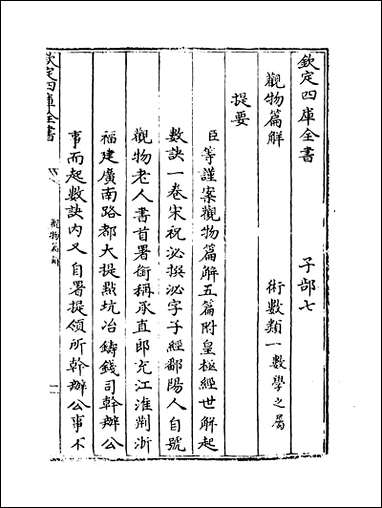 欽定四庫全書　子部七
觀物篇解　術數類一數學之屬
提要
臣等謹案觀物篇解五篇附皇極經世解起
數訣一卷宋祝泌撰泌字子經鄱陽人自號
觀物老人書首署銜稱承直郎充江淮荆浙
福建廣南路都大提㸃坑冶鑄錢司幹辦公
事而起數訣内又自署提領所幹辦公事不
欽定四庫全書
觀物篇解
一